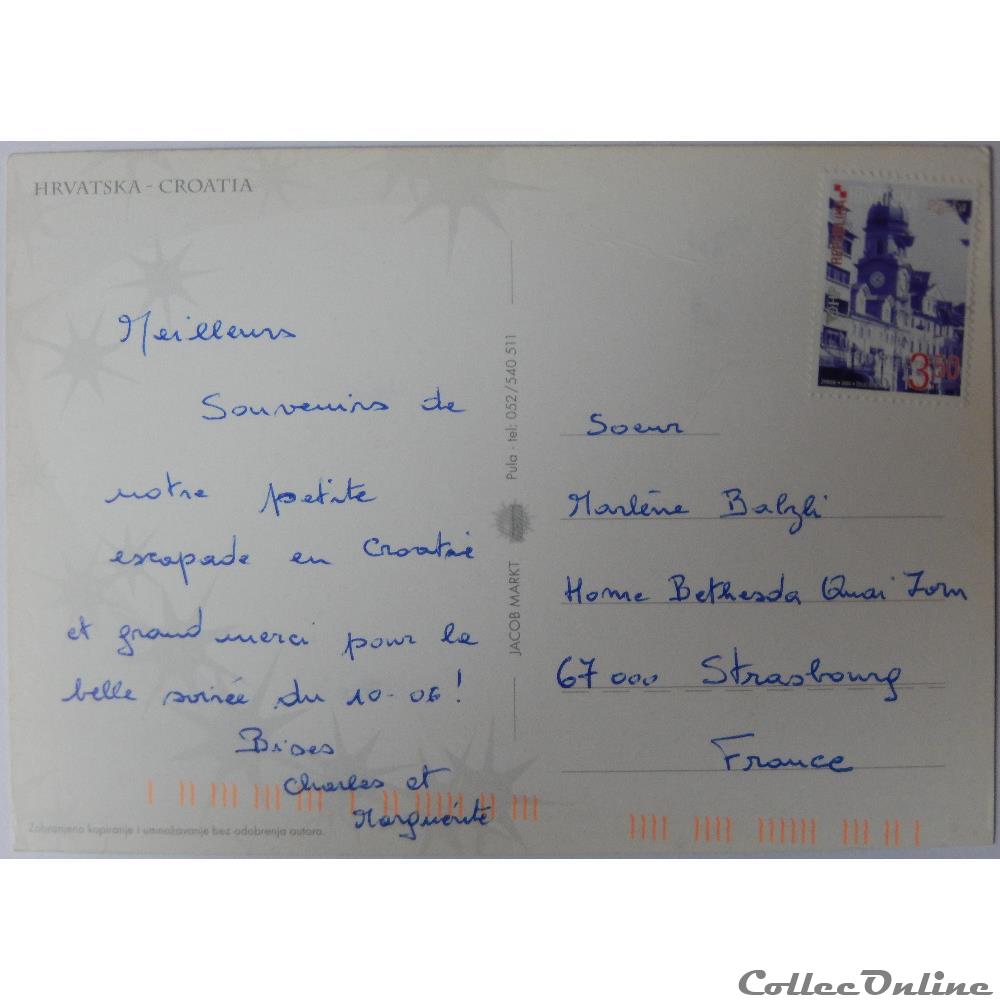 HRVATSKA - CROATIA
Meilleurs
Souvenirs de
notre petite
escapade en Croatie
et grand merci pour la
belle soirée du 10-06!
Bises
Charles et
Marguerite
Zabranjeno kopiranje i umnožavanje bez odobrenja autora.
JACOB MARKT Pula · tel: 052/540 511
REPUBLIKA
3,50
Soeur
Marlène Balzli
Home Bethesda Quai Zorn
67000 Strasbourg
France
CollecOnline